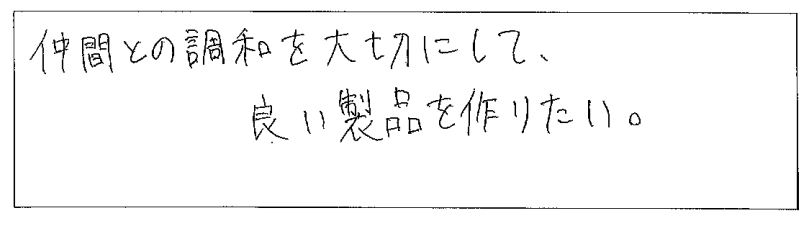 仲間との調和を大切にして、
良い製品を作りたい。